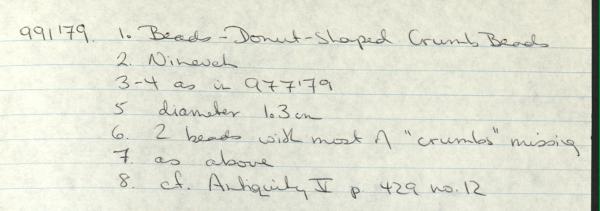 991'79. 1. Beads - Donut-Shaped Crumb Beads
2. Nineveh
3-4 as in 977'79
5 diameter 1.3 cm
6. 2 beads with most of "crumbs" missing
7 as above
8. cf. Antiquity V p. 429 no. 12